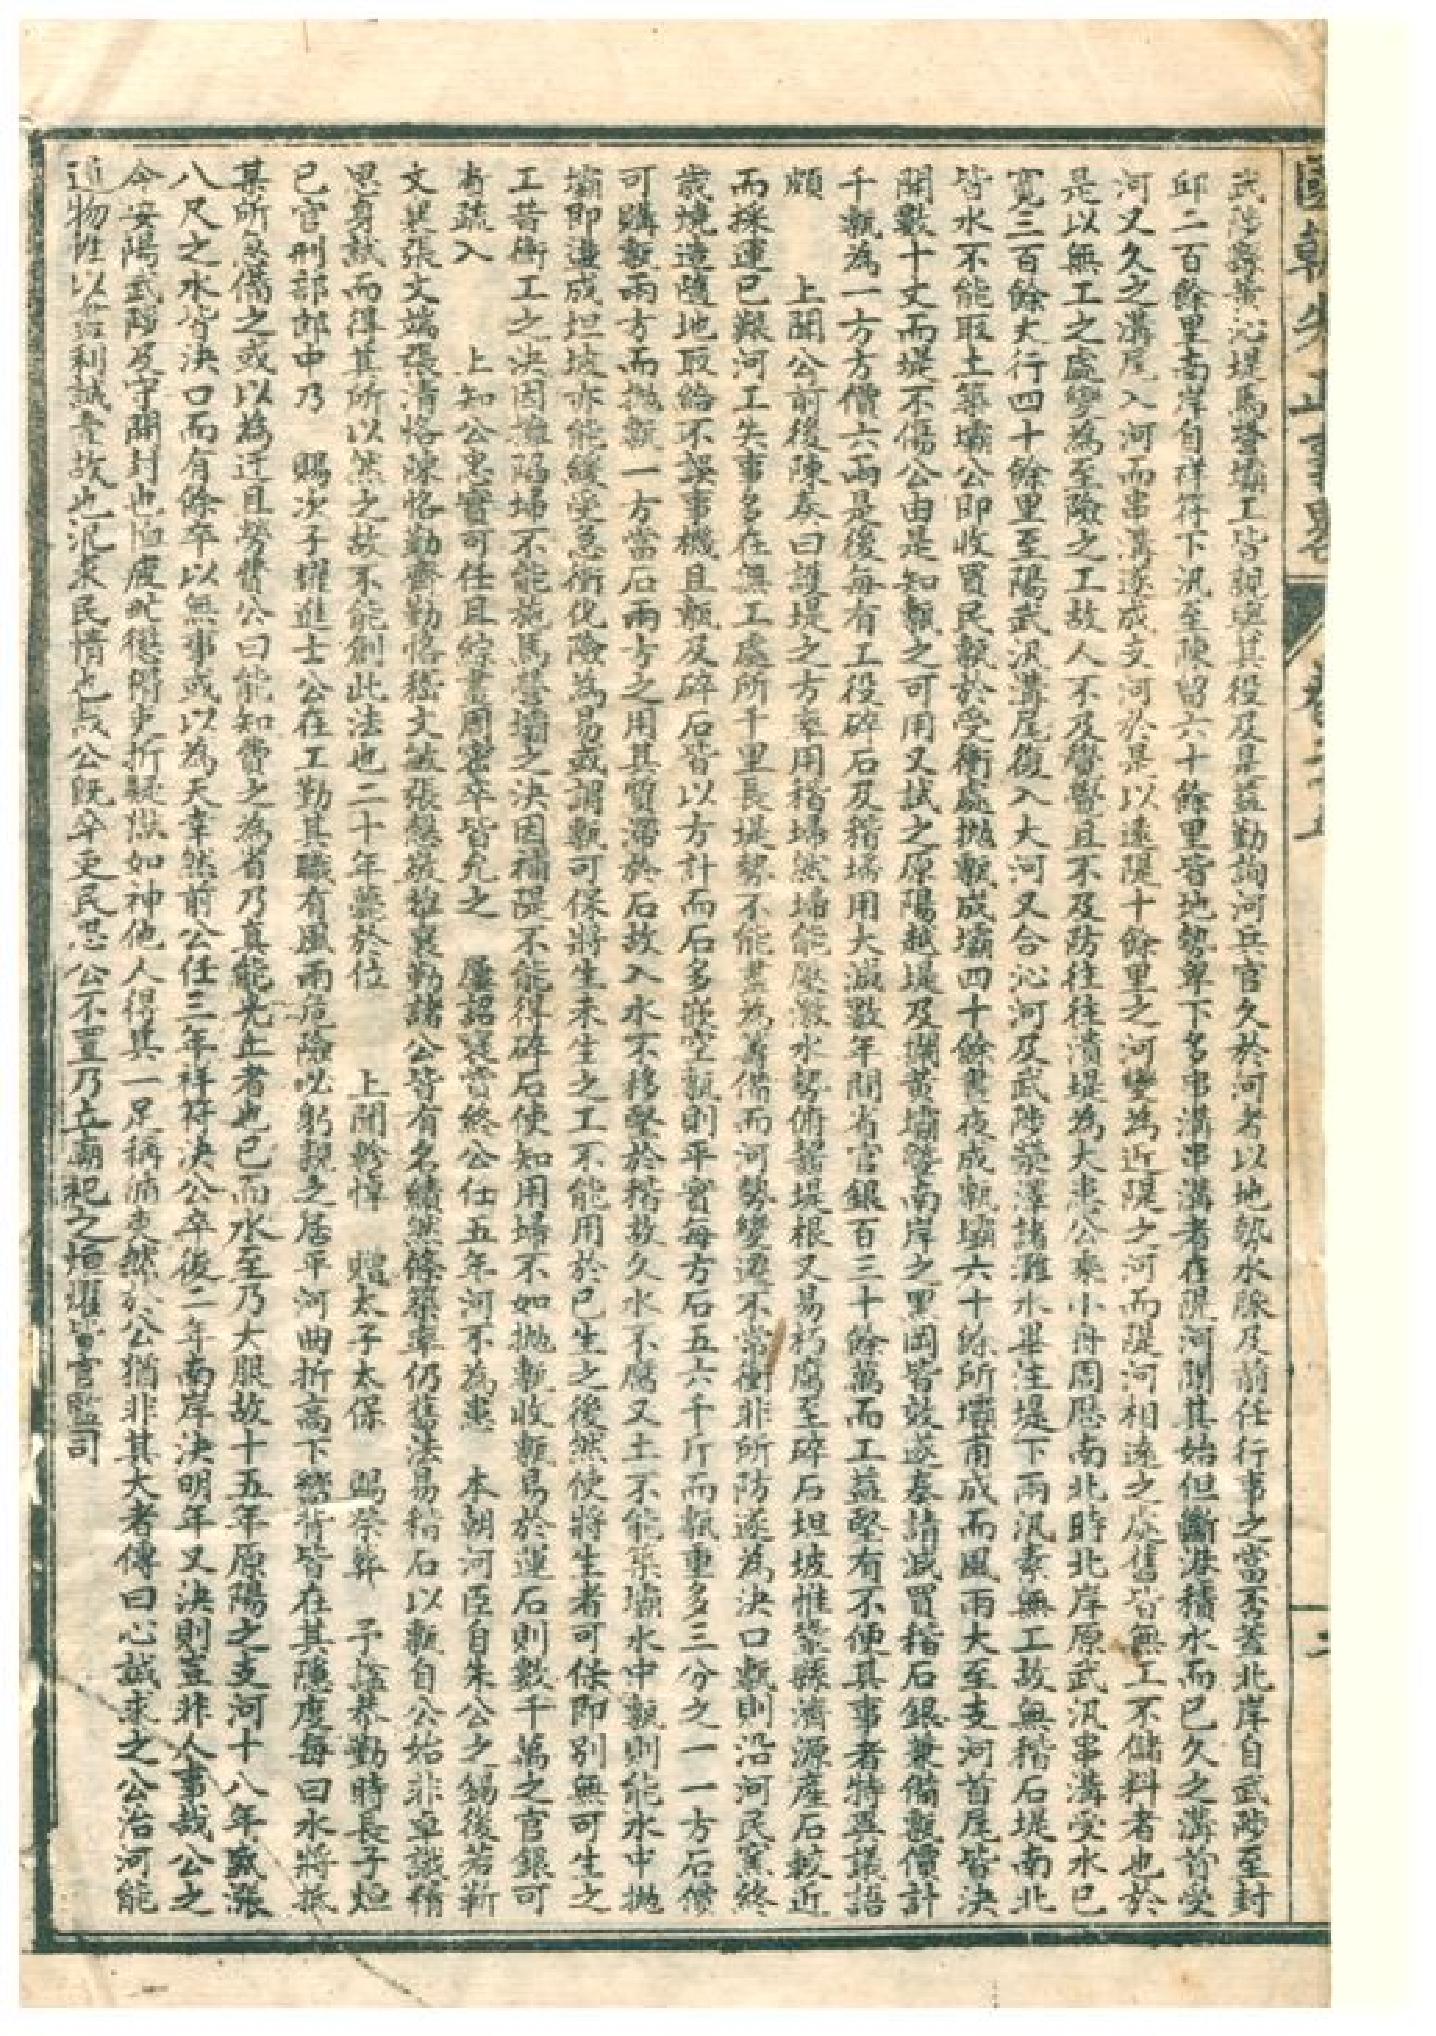 國朝先正事略
武陟縣黃沁堤馬營壩工皆親與其役及是益勤詢河兵官久於河者以地勢水脈及前任行事之當否蓋北岸自武陟至封
邱二百餘里南岸自祥符下汛至陳留六十餘里皆地勢卑下多串溝串溝者在隄河閒其始但斷港積水而已久之溝首受
河又久之溝尾入河而串溝遂成支河於是以遠隄十餘里之河變為近隄之河而隄河相遠之處舊皆無工不儲料者也於
是以無工之處變為至險之工故人不及覺覺且不及防往往潰堤為大患公乘小舟周歷南北時北岸原武汛串溝受水已
寬三百餘丈行四十餘里至陽武汛溝尾復入大河又合沁河及武陟滎澤諸灘水畢注堤下兩汛素無工故無稭石堤南北
皆水不能取土築壩公即收買民甎於受衝處拋甎成壩四十餘晝夜成甎壩六十餘所壩甫成而風雨大至支河首尾皆決
開數十丈而堤不傷公由是知甎之可用又試之原陽越堤及攔黃壩暨南岸之黑岡皆效遂奏請減買稭石銀兼備甎價計
千甎為一方方價六兩是後每有工役碎石及稭埽用大減數年閒省官銀百三十餘萬而工益堅有不便其事者特異議語
頗　上聞公前後陳奏曰護堤之方率用稭埽然埽能壓激水勢俯齧堤根又易朽腐至碎石坦坡惟鞏縣濟源產石較近
而採運已艱河工失事多在無工處所千里長堤勢不能盡為籌備而河勢變遷不常衝非所防遂為決口甎則沿河民窯終
歲燒造隨地取給不誤事機且甎及碎石皆以方計而石多嵌空甎則平實每方石五六千斤而甎重多三分之一一方石價
可購甎兩方而拋甎一方當石兩方之用其質滯於石故入水不移堅於稭故久水不腐又土不能築壩水中甎則能水中拋
壩即邊成坦坡亦能緩受急衝化險為易或謂甎可保將生未生之工不能用於已生之後然使將生者可保即別無可生之
工昔衡工之決因攤陷埽不能施馬營壩之決因補隄不能得碎石使知用埽不如拋甎收甎易於運石則數千萬之官銀可
省疏入　上知公忠實可任且綜畫周密卒皆允之　屢詔褒嘗終公任五年河不為患　本朝河臣自朱公之錫後若靳
文襄張文端張清恪陳恪勤齊勤恪嵇文敏張慤敬黎襄勤諸公皆有名績然修築率仍舊法易稭石以甎自公始非卓識精
思身試而得其所以然之故不能創此法也二十年薨於位　上聞軫悼　贈太子太保　賜祭葬　予諡恭勤時長子烜
已官刑部郎中乃　賜次子燿進士公在工勤其職有風雨危險必躬親之居平河曲折高下嚮背皆在其隱度每曰水將抵
某所急備之或以為迂且勞費公曰能知費之為省乃真能先止者也已而水至乃大服故十五年原陽之支河十八年盛漲
八尺之水皆決口而有餘卒以無事或以為天幸然前公任三年祥符決公卒後二年南岸決明年又決則豈非人事哉公之
令安陽武陟及守開封也恤疲氓懲猾吏折疑獄如神他人得其一足稱循吏然於公猶非其大者傳曰心誠求之公治河能
通物性以為利誠壹故也況求民情也哉公既卒吏民思公不置乃立廟祀之烜燿皆官監司